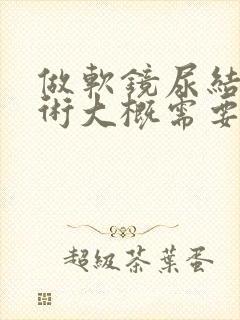 做軟鏡尿結
術大概需要
超級茶葉蛋